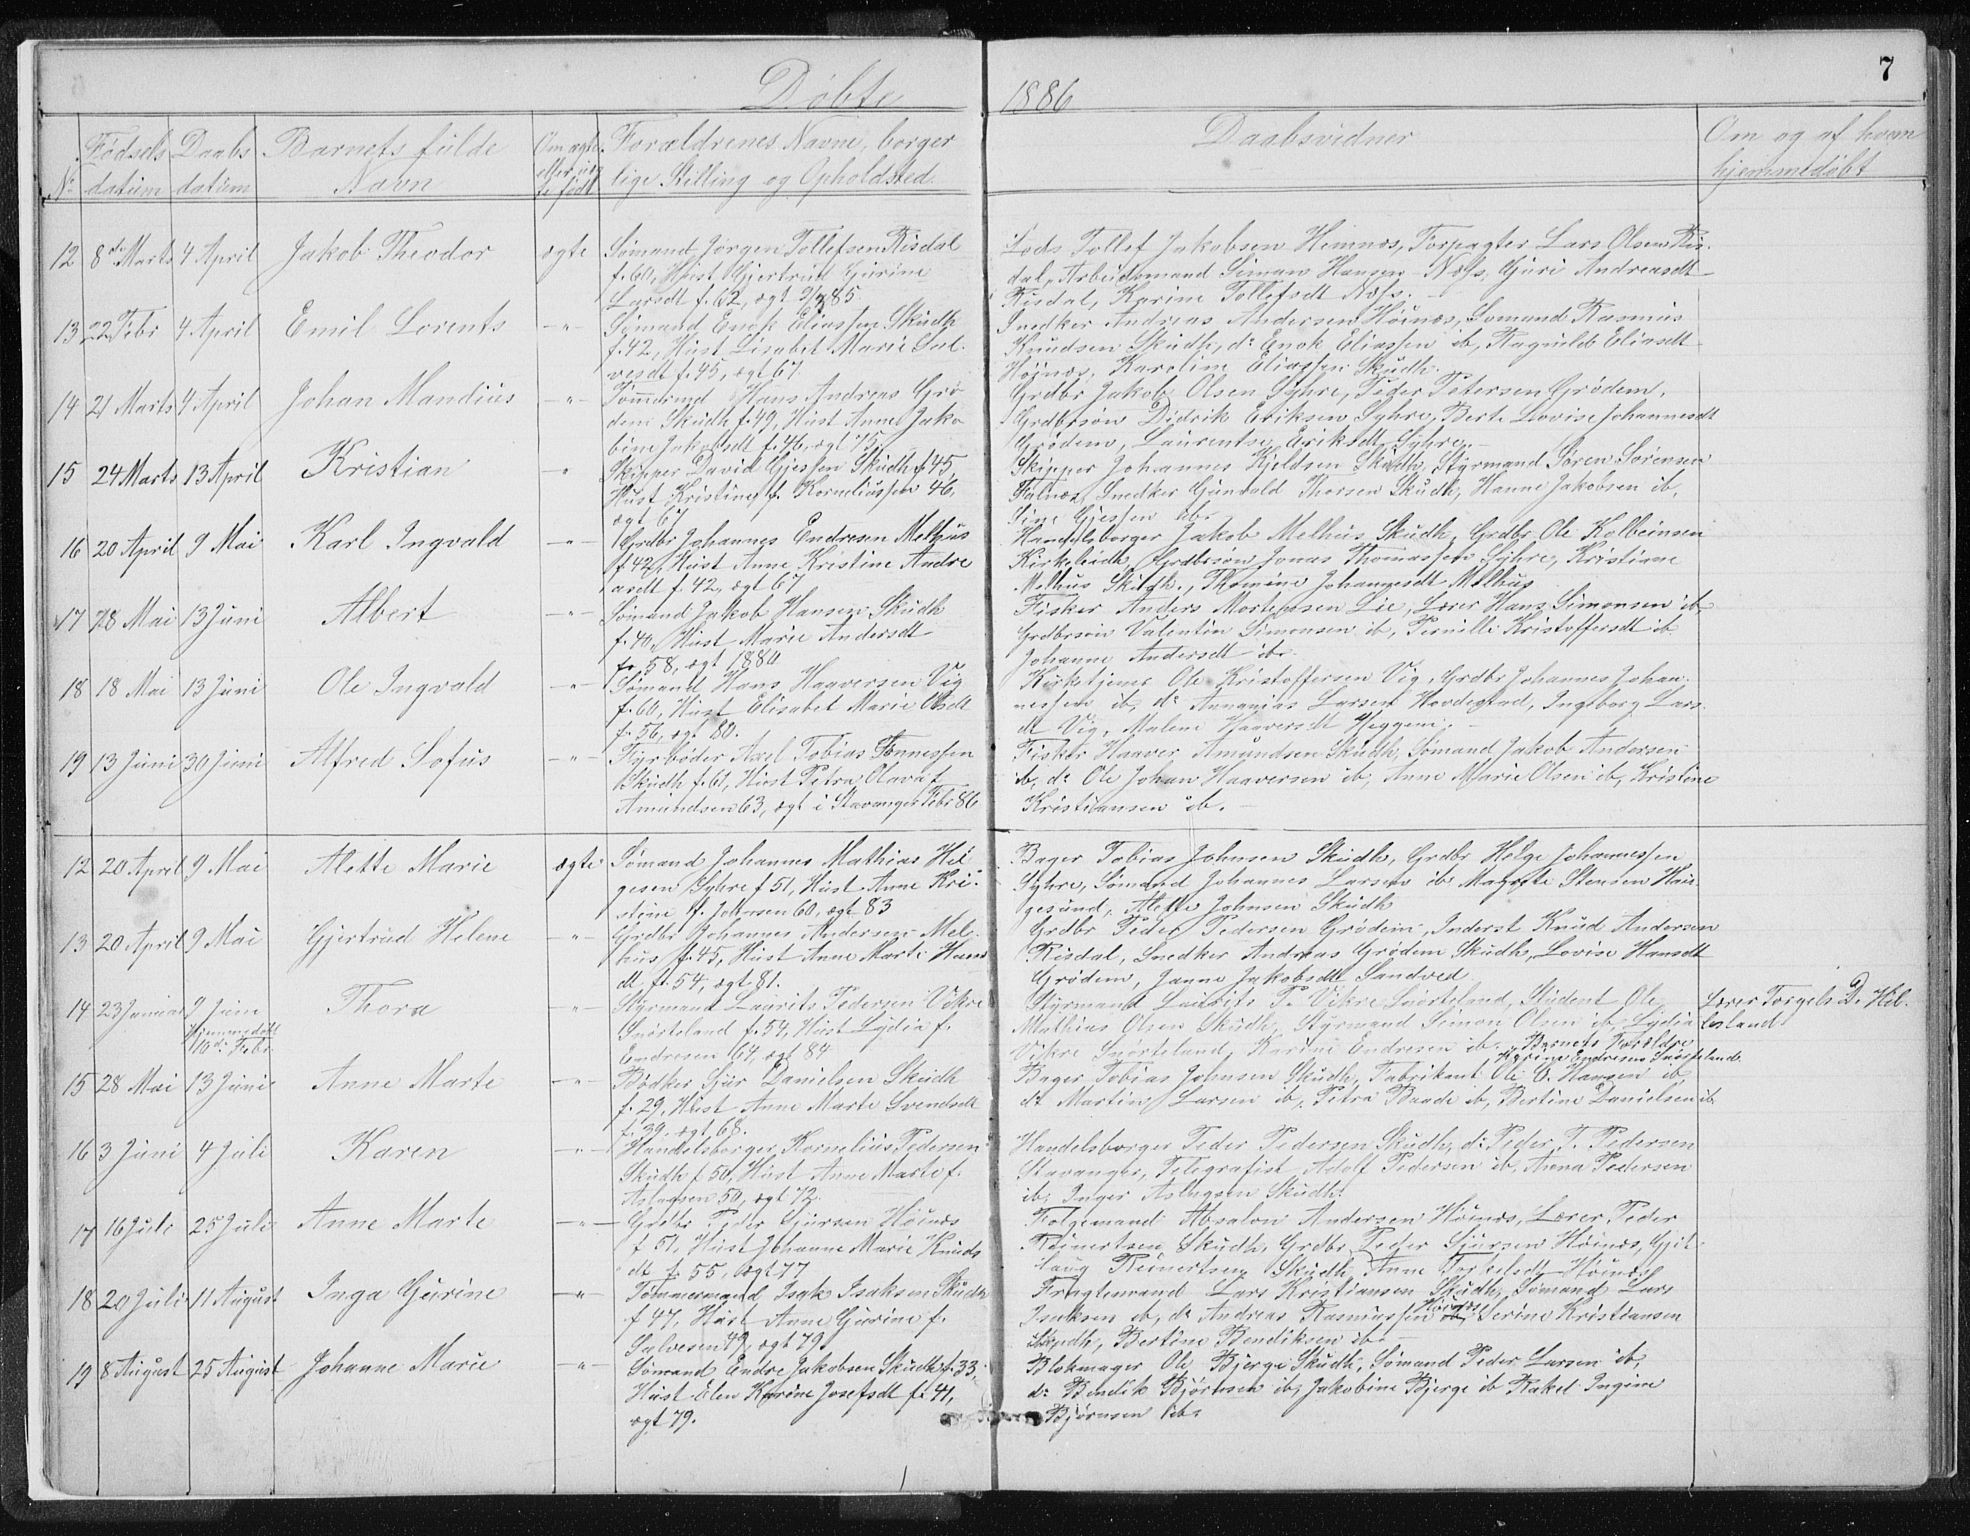 7
Døbte 1886
No
Fødsels datum
Daabs datum
Barnets fulde Navn
Om ægte eller uægte født
Forældrenes Navne, borgerlige Stilling og Opholdsted.
Daabsvidner
Om og af hvem hjemmedøbt
12 8de Marts 4 April Jakob Theodor ægte
Sømand Jørgen Tollefsen Risdal
f. 60, Hust Gjertrud Gurine
Larsdt f. 62, ægt 85
Lods Tollef Jakobsen Hemnæs, Forpagter Lars Olsen Ris-
dal, Arbeidsmand Simon Hansen Næss, Guri Andreasdt
Risdal, Karine Tollefsdt Næss.
13 22 Febr 4 April Emil Lorents -"-
Sømand Enok Eliassen Skudh
f. 42, Hust Lisabet Marie Sel-
vesdt f. 45, ægt 67
Snedker Andreas Andersen Høinæs, Sømand Rasmus
Knudsen Skudh, do Enok Eliassen ib, Ragnilde Eliasdt
Høinæs, Karoline Eliassen Skudh.
14 21 Marts 4 April Johan Mandius -"-
Tømmermd Hans Andreas Grø-
dem Skudh f. 49, Hust Anne Jako-
bine Jakobsdt f. 46, ægt 75.
Grdbr Jakob Olsen Syhre, Peder Petersen Grødem,
Grdbrsøn Didrik Eriksen Syhre, Berte Lovise Johannesdt
Grødem, Laurentse Eriksdt Syhre.
15 24 Marts 13 April Kristian -"-
Skipper David Gjessen Skudh f. 45,
Hust Kristine f. Korneliussen 46,
ægt 67
Skipper Johannes Kjeldsen Skudh, Styrmand Søren Sørensen
Falnes, Snedker Gunvald Thorsen Skudh, Hanne Jakobsen ib,
Sine Gjessen ib.
16 20 April 9 Mai Karl Ingvald -"-
Grdbr Johannes Endresen Melhus
f 42, Hust Anne Kristine Andre
asdt f. 42, ægt 67
Handelsborger Jakob Melhus Skudh, Grdbr Ole Kolbeinsen
Kirkeleidh, Grdbrsøn Jonas Thomassen Syhre, Kristiane
Melhus Skudh, Thomine Johannesdt Melhus
17 28 Mai 13 Juni Albert -"-
Sømand Jakob Hansen Skudh
f. 40, Hust Marie Andersdt
f. 58, ægt 1880
Fisker Anders Mortensen Lie, Lærer Hans Simonsen ib,
Grdbrsøn Valentin Simonsen ib, Pernille Kristoffersdt ib
Johanne Andersdt ib.
18 18 Mai 13 Juni Ole Ingvald -"-
Sømand Hans Haaversen Vig
f. 60, Hust Elisabet Marie Olsdt
f. 56, ægt 80.
Kirketjener Ole Kristoffersen Vig, Grdbr Johannes Johan-
nessen ib, do Ananias Larsen Hovdestad, Ingeborg Lars-
dt Vig, Malene Haaversdt Heggem.
19 13 Juni 30 Juni Alfred Sofus -"-
Fyrbøder Axel Tobias Tønnessen
Skudh f. 61, Hust Petra Olava f
Amundsen 63, ægt i Stavanger Febr 86
Fisker Haaver Amundsen Skudh, Sømand Jakob Andersen
ib, do Ole Johan Haaversen ib, Anne Marie Olsen ib, Kristine
Kristiansen ib.
12 20 April 9 Mai Alette Marie ægte
Sømand Johannes Mathias Hel-
gesen Syhre f 51, Hust Anne Kri-
stine f. Johnsen 60, ægt 83
Bager Tobias Johnsen Skudh, Grdbr Helge Johannessen
Syhre, Sømand Johannes Larsen ib Magrete Stensen Hau-
gesund, Alette Johnsen Skudh
13 20 April 9 Mai Gjertrud Helene -"-
Grdbr Johannes Andersen Mel-
hus f. 45, Hust Anne Marte Hans
dt f. 54, ægt 81.
Grdbr Peder Pedersen Grødem, Inderst Knud Andersen
Risdal, Snedker Andreas Grødem Skudh, Lovise Hansdt
Grødem, Janne Jakobsdt Sandved
14 23 Januar 9 Juni Thora -"-
Hjemmedøbt
10de Febr
Styrmand Laurits Pedersen Vikre
Snørteland f. 54, Hust Lydia f.
Endresen 64, ægt 84
Styrmand Laurits P. Vikre Snørteland, Student Ole
Mathias Olsen Skudh, Styrmand Simon Olsen ib, Lydia
Vikre Snørteland, Karine Endresen ib. Barnets Forældre
Karine Endresen Snørteland
Lærer Torgels D. Hel-
lesland
15 28 Mai 13 Juni Anne Marte -"-
Bødker Sjur Danielsen Skudh
f. 29, Hust Anne Marte Svendsdt
f. 39, ægt 68.
Bager Tobias Johnsen Skudh, Fabrikant Ole O. Hansen ib,
do Martin Larsen ib, Petra Baade ib, Bertine Danielsen ib
16 3 Juni 4 Juli Karen -"-
Handelsborger Kornelius Pedersen
Skudh f 50, Hust Anne Marte f.
Aslagsen 50, ægt 72.
Handelsborger Peder Pedersen Skudh, do Peder T. Pedersen
Stavanger, Telegrafist Adolf Pedersen ib, Anna Pedersen
ib, Inger Aslagsen Skudh.
17 16 Juli 25 Juli Anne Marte -"-
Grdbr Peder Sjursen Høinæs
f 51, Hust Johanne Marie Knuds
dt f. 55, ægt 77
Følgemand Absalon Andersen Høinæs, Lærer Peder
Reinertsen Skudh, Grdbr Peder Sjursen Høinæs, Gjit-
laug Reinertsen Skudh, Anne Torkelsdt Høinæs
18 20 Juli 11 August Inga Gurine -"-
Tømmermand Isak Isaksen Skudh
f 47, Hust Anne Gurine f.
Salvesen 49, ægt 79
Fragtemand Lars Kristiansen Skudh, Sømand Lars
Isaksen ib, do Andreas Rasmussen Høinæs, Serine Kristiansen
Skudh, Bertine Bendiksen ib.
19 8 August 25 August Johanne Marie -"-
Sømand Endre Jakobsen Skudh f. 33,
Hust Elen Karine Josefsdt f. 41,
ægt 79.
Blokmager Ole Bjerge Skudh, Sømand Peder Larsen ib,
do Bendik Bjørnsen ib, Jakobine Bjerge ib Rakel Ingine
Bjørnsen ib.